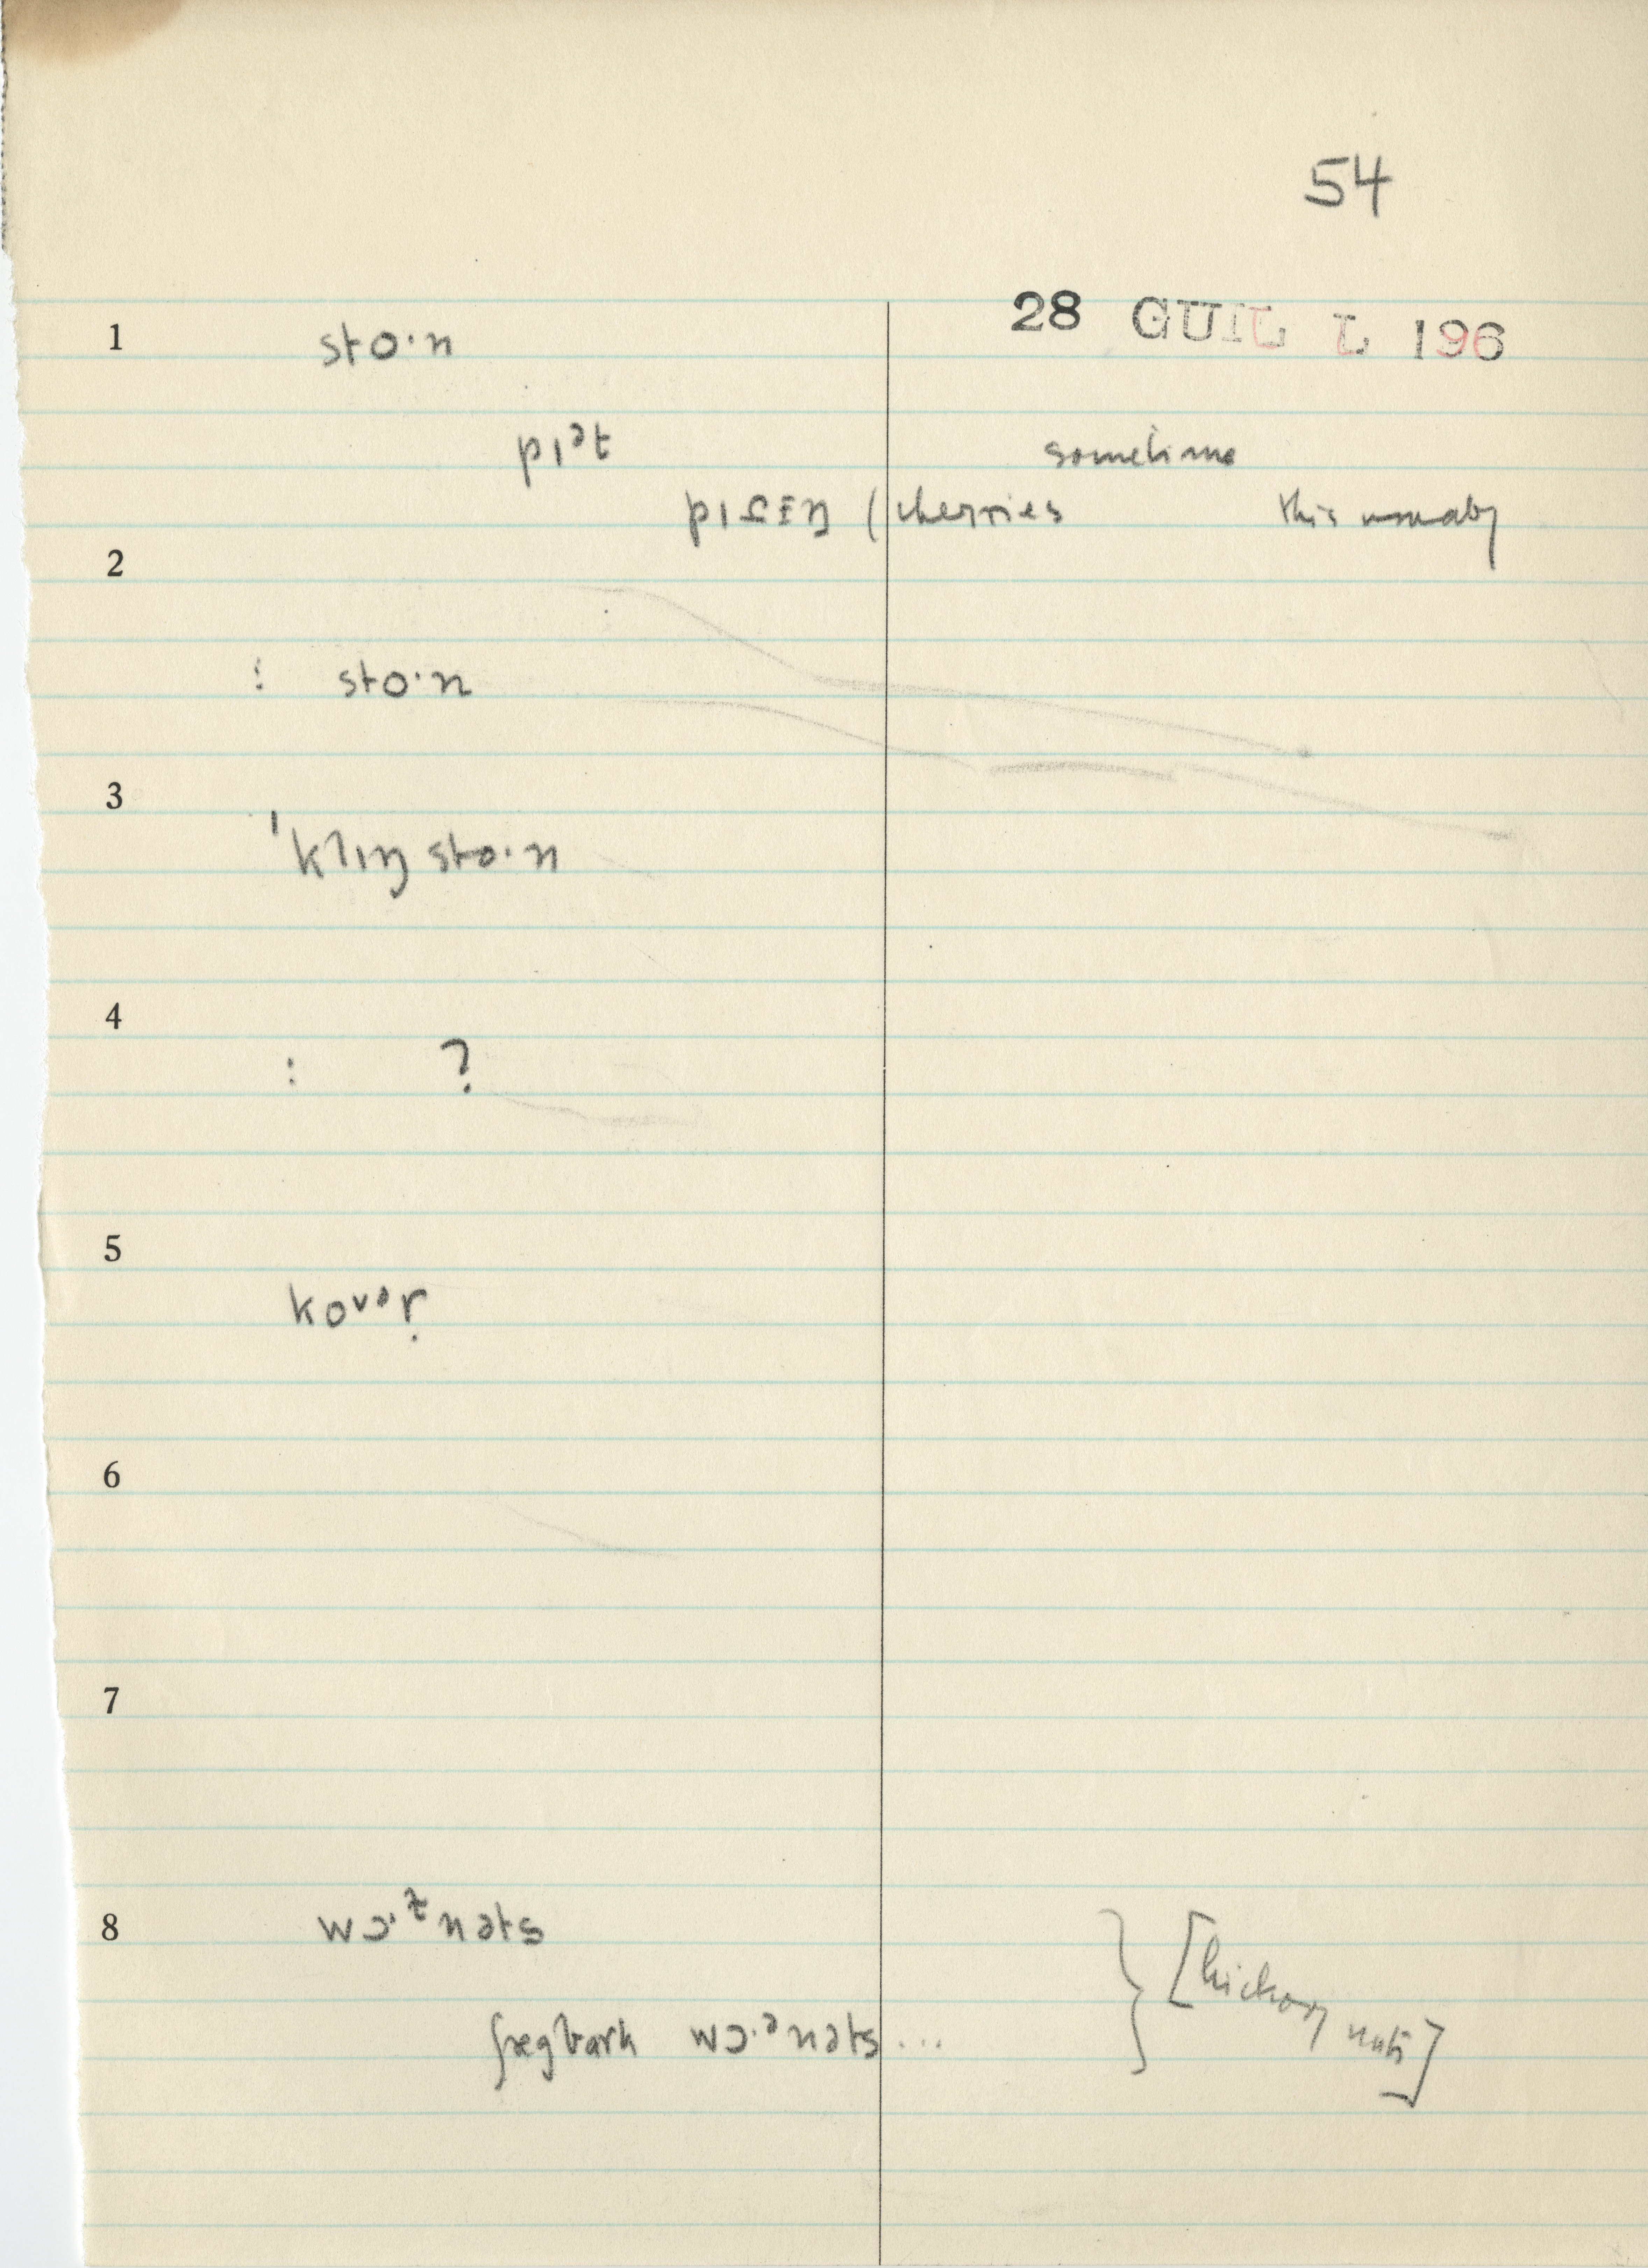 54
28 GUIL L 196
1 sto·n
pɪᵊt sometime
(cherries this usually
2
: sto·n
3
ˈklɪŋ sto·n
4
: ?
5
6
7
8 nəts
ʃægbark wɔ·ᵊnəts...
[hickory nuts]